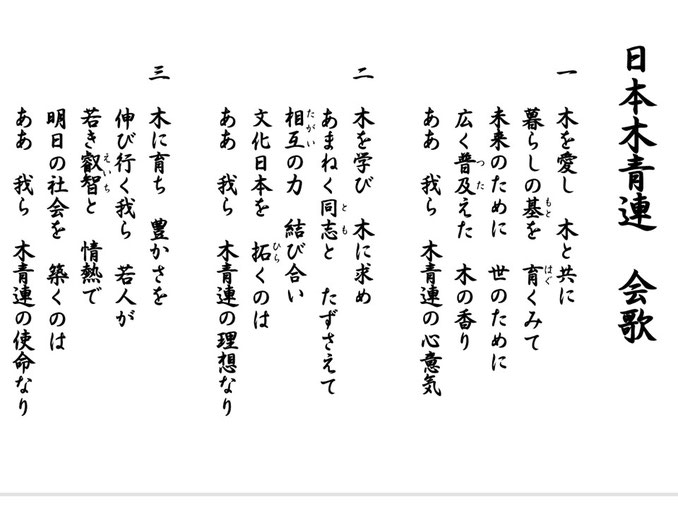 日本木青連　会歌
一　木を愛し　木と共に
暮らしの基を　育くみて
未来のために　世のために
広く普及えた　木の香り
ああ　我ら　木青連の心意気
二　木を学び　木に求め
あまねく同志と　たずさえて
相互の力　結び合い
文化日本を　拓くのは
ああ　我ら　木青連の理想なり
三　木に育ち　豊かさを
伸び行く我ら　若人が
若き叡智と　情熱で
明日の社会を　築くのは
ああ　我ら　木青連の使命なり